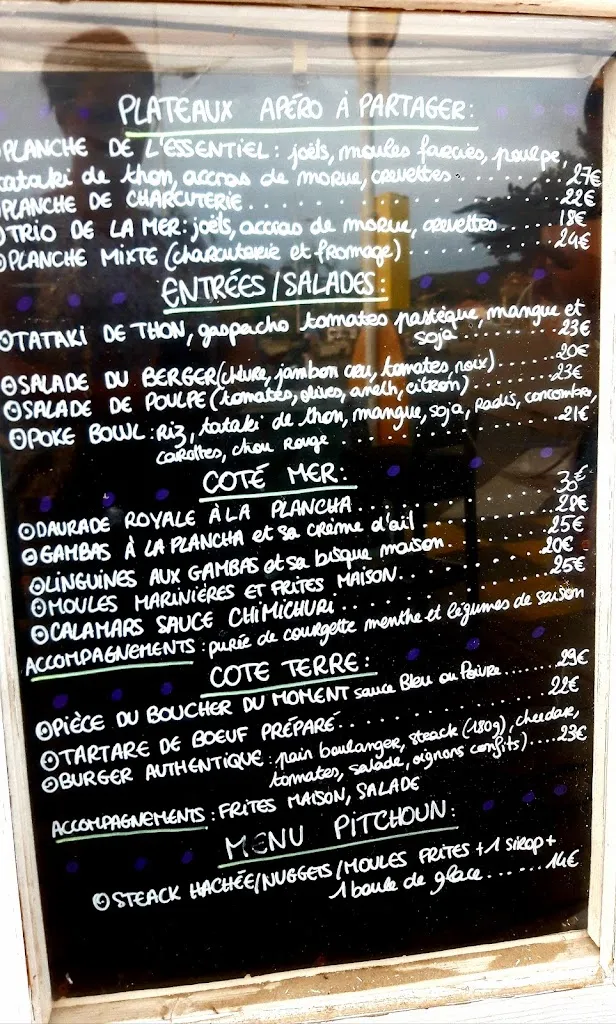 PLATEAUX APÉRO À PARTAGER:
PLANCHE DE L'ESSENTIEL: joëls, moules farcies, poulpe,
tataki de thon, accras de morue, crevettes..........27€
PLANCHE DE CHARCUTERIE..........22€
TRIO DE LA MER: joëls, accras de morue, crevettes.....18€
PLANCHE MIXTE (charcuterie et fromage)..........24€
ENTRÉES/SALADES:
TATAKI DE THON, gaspacho tomates pastèque, mangue et
soja..........23€
SALADE DU BERGER (chèvre, jambon cru, tomates, noix)..........20€
SALADE DE POULPE (tomates, olives, aneth, citron)..........23€
POKE BOWL: Riz, tataki de thon, mangue, soja, Radis, concombre,
carottes, chou Rouge..........21€
COTÉ MER:
DAURADE ROYALE À LA PLANCHA..........30€
GAMBAS À LA PLANCHA et sa crème d'ail..........28€
LINGUINES AUX GAMBAS et sa bisque maison..........25€
MOULES MARINIÈRES ET FRITES MAISON..........20€
CALAMARS SAUCE CHIMICHURI..........25€
ACCOMPAGNEMENTS: purée de courgette menthe et légumes de saison
COTE TERRE:
PIÈCE DU BOUCHER DU MOMENT sauce Bleu ou Poivre.......29€
TARTARE DE BOEUF PRÉPARÉ..........22€
BURGER AUTHENTIQUE: pain boulanger, steack (180g), cheddar,
tomates, salade, oignons confits)....23€
ACCOMPAGNEMENTS: FRITES MAISON, SALADE
MENU PITCHOUN:
STEACK HACHÉE/NUGGETS/MOULES FRITES +1 SIROP+
1 boule de glace.......14€